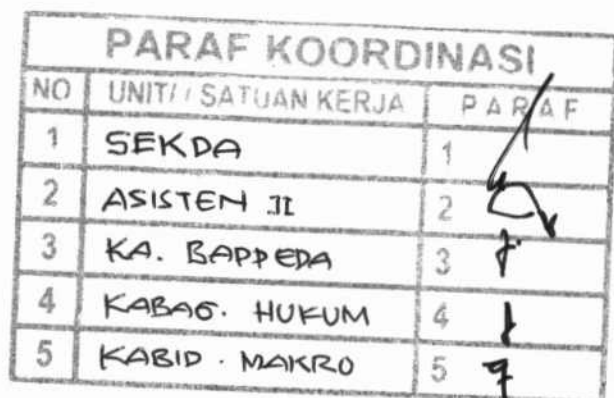 PARAF KOORDINASI
NO UNIT / SATUAN KERJA PARAF
1 SEKDA 1
2 ASISTEN II 2
3 KA. BAPPEDA 3
4 KABAG. HUKUM 4
5 KABID. MAKRO 5